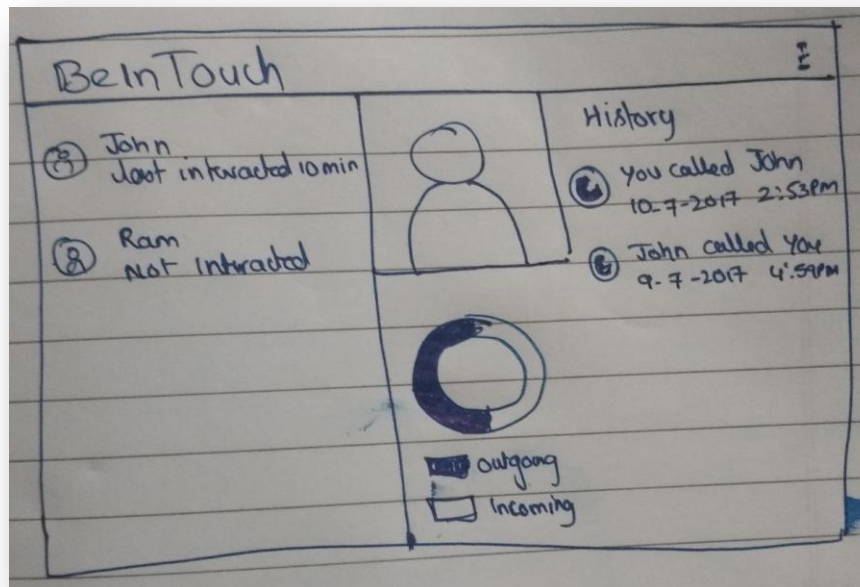 BeInTouch
John
last interacted 10 min
Ram
Not Interacted
History
You called John
10-7-2017 2:53PM
John called You
9-7-2017 4:59PM
Outgoing
Incoming